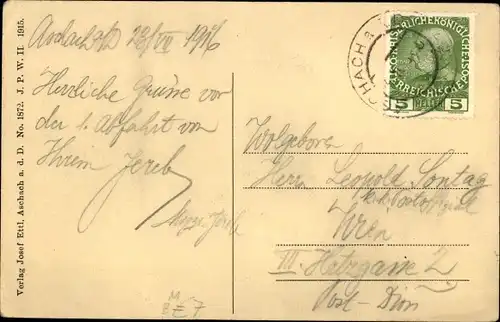 Verlag Josef Ettl, Aschach a. d. D. No. 1872. J. P. W. II. 1915.
Aschach a/D 28/VII 1916
Herzliche Grüsse vor
der 1. Abfahrt von
Ihrem Jereb
KAISERLICHE KÖNIGLICHE
ÖSTERREICHISCHE POST
5 HELLER 5
ASCHACH a.
Wolgeboren
Herrn Leopold Sontag
k.k. Postoffizial
Wien
III. Hetzgasse 2
Post-Dion
M
E 7